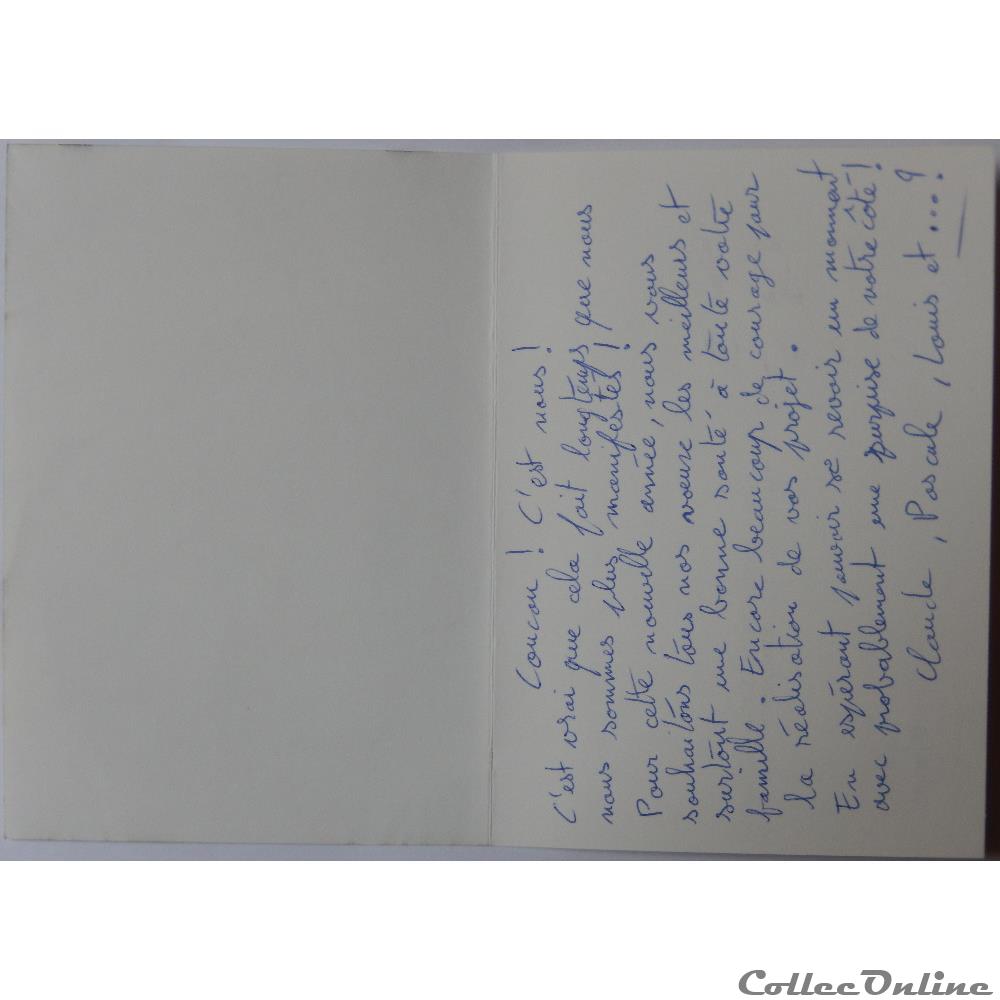 Coucou ! C'est nous !
C'est vrai que cela fait longtemps que nous
nous sommes plus manifestés !
Pour cette nouvelle année, nous vous
souhaitons tous nos voeux les meilleurs et
surtout une bonne santé à toute votre
famille. Encore beaucoup de courage pour
la réalisation de vos projet.
En espérant pouvoir se revoir un moment
avec probablement une surprise de notre côté !
Claude, Pascale, Louis et ...?
CollecOnline